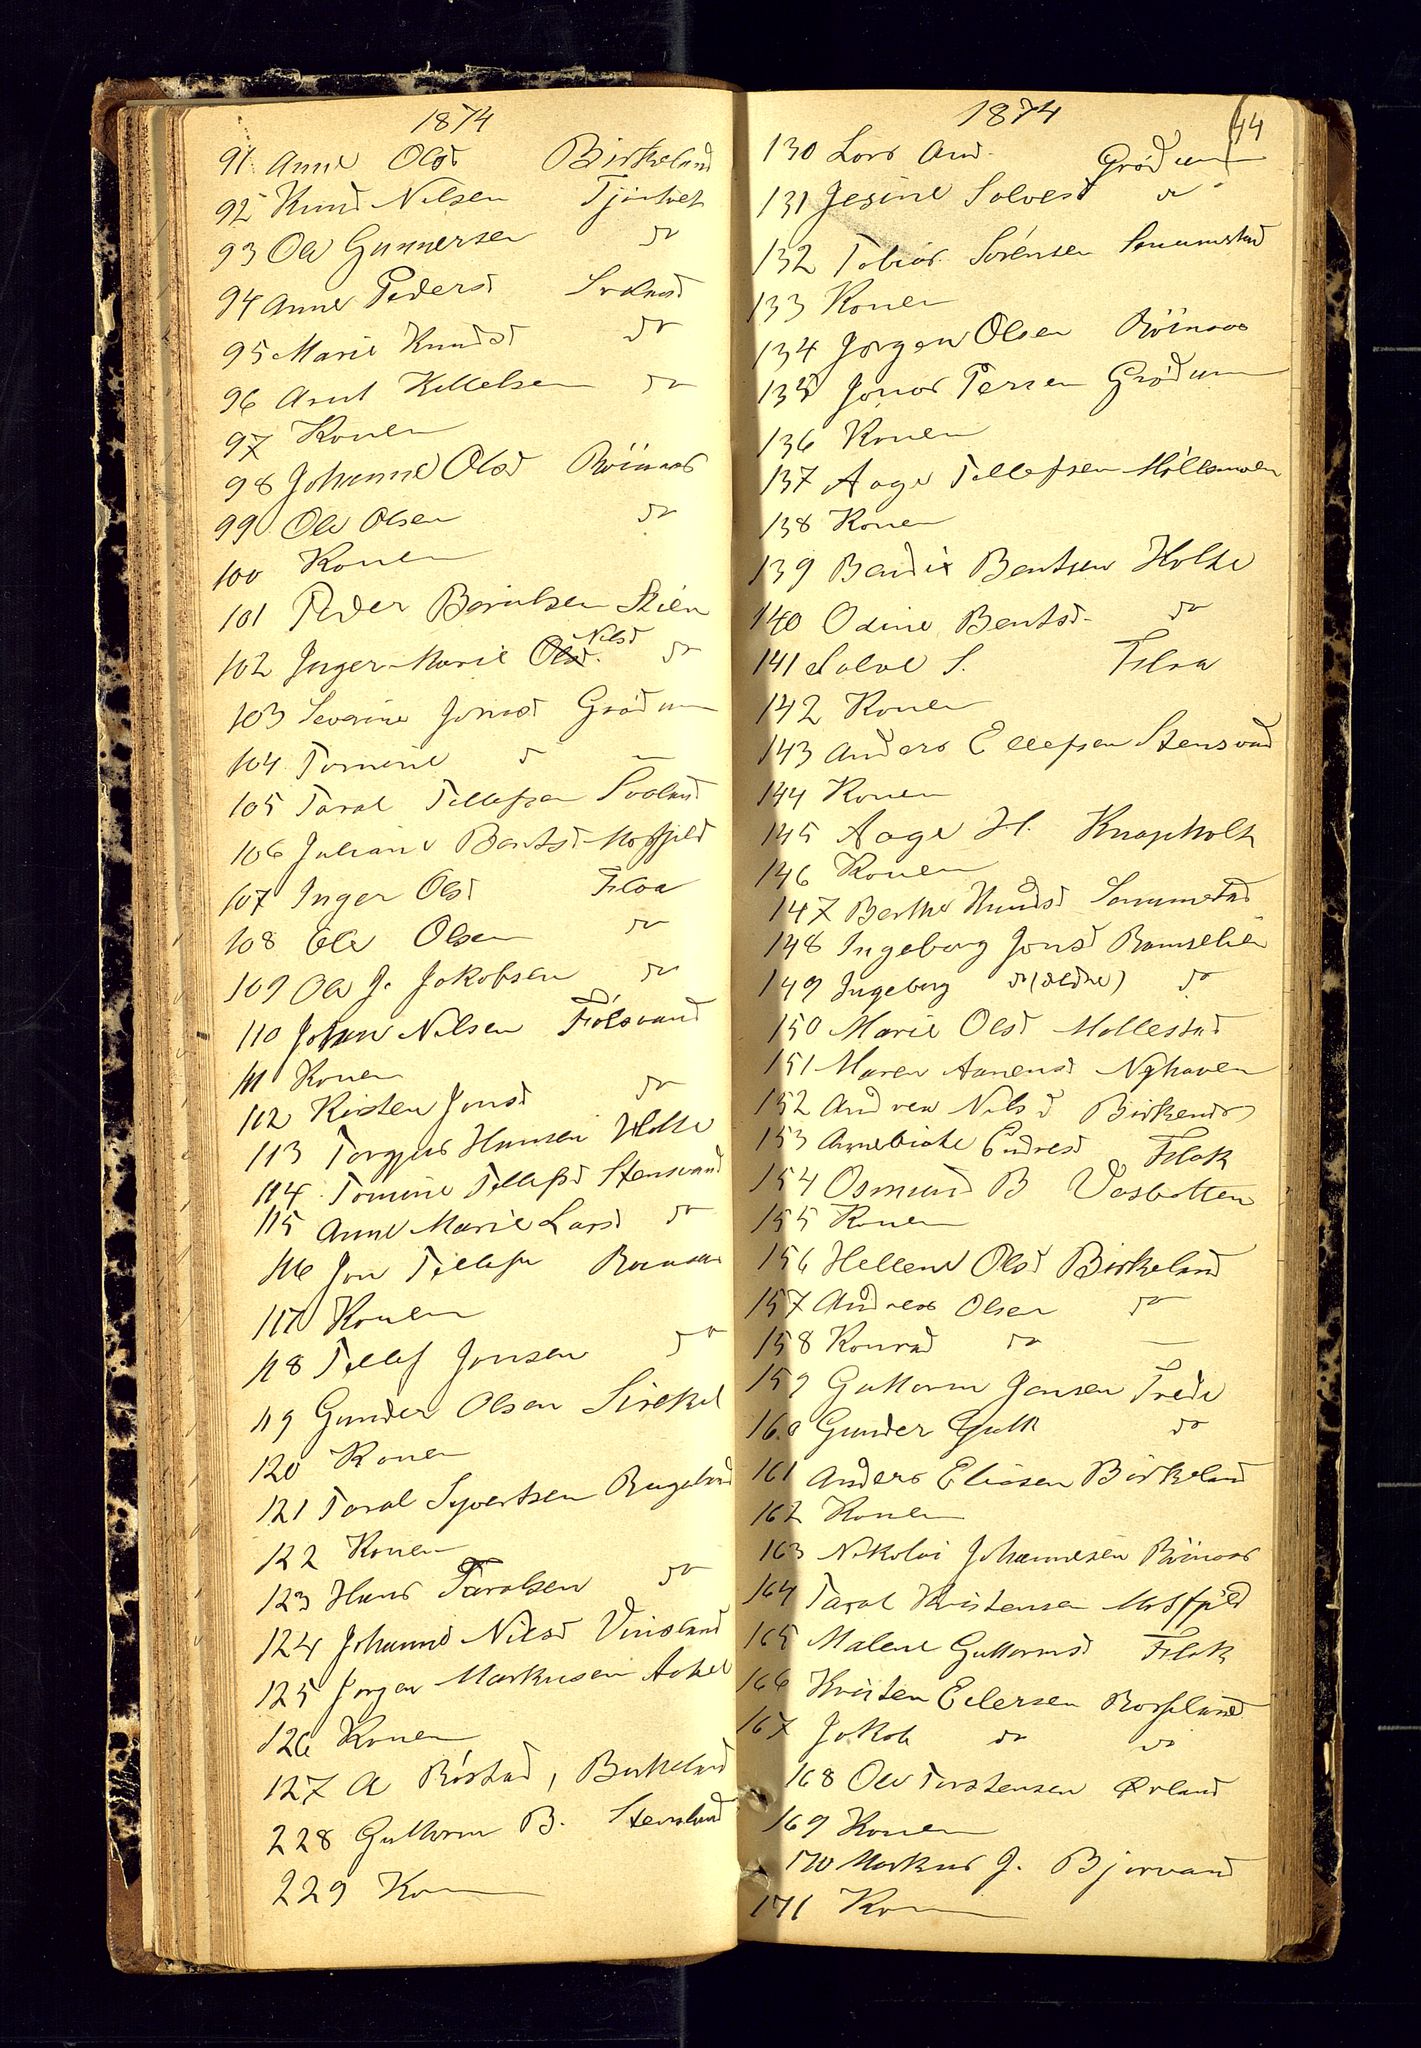 1874
91 Anne Olsd Birkeland
92 Knud Nilsen Tjøntvet
93 Ole Gunnersen do
94 Anne Pedersd
95 Marie Knudsd do
96 Arnt Kittelsen do
97 Konen
98 Johanne Olsd Röinaas
99 Ole Olsen do
100 Konen
101 Peder Berntsen Stien
102 Inger Marie Olsd. Nilsd do
103 Severine Jonsd Grødum
104 Tomine d —
105 Taral Tellefsen
106 Juliane Bentsd Mosfjeld
107 Inger Olsd Flaa
108 Ole Olsen do
109 Ole J. Jakobsen do
110 Johan Nilsen
111 Konen
112 Kisten Jonsd do
113 Torgjus Hansen Holte
114 Tomine Tellefsd Stensvand
115 Anne Marie Larsd do
116 Jon Tellefsen
117 Konen
118 Tellef Jonsen do
119 Gunder Olsen Sirekel
120 Konen
121 Taral Syvertsen Rugeland
122 Konen
123 Hans Taralsen do
124 Johanne Nilsd Vinsland
125 Jorgen Markusen
126 Konen
127 A Röstad, Birkeland
228 Guttorm B. Stensland
229 Kon
1874
44
130 Lars And. Grödum
131 Jesine Solvesd do
132 Tobias Sörensen
133 Konen
134 Jörgen Olsen Röinaas
135 Jonas Persen Grödum
136 Konen
137 Aage Tellefsen Möllemoen
138 Konen
139 Bendix Bentsen Holte
140 Odine Bentsd. do
141 Salve S. Flaa
142 Konen
143 Anders Ellefsen Stensvand
144 Konen
145 Aage H. Knapholt
146 Konen
147 Berthe Knudsd
148 Ingeborg Jonsd Ramselien
149 Ingeborg do (ældre) do
150 Marie Olsd Mollestad
151 Maren Aanensd Nyhaven
152 Andrea Nilsd Birkenæs
153 Annebirte Endresd Flak
154 Osmund B Vasbotten
155 Konen
156 Hellene Olsd Birkeland
157 Andreas Olsen do
158 Konrad do —
159 Guttorm Jensen Trede
160 Gunder Gutt do
161 Anders Eliasen Birkeland
162 Konen
163 Nikolai Johannesen Röinaas
164 Taral Kristensen Mosfjeld
165 Malene Guttormsd Flak
166 Kristen Eilersen
167 Jakob do do
168 Ole Torstensen Ørland
169 Konen
170 Markus J. Bjorvand
171 Kon